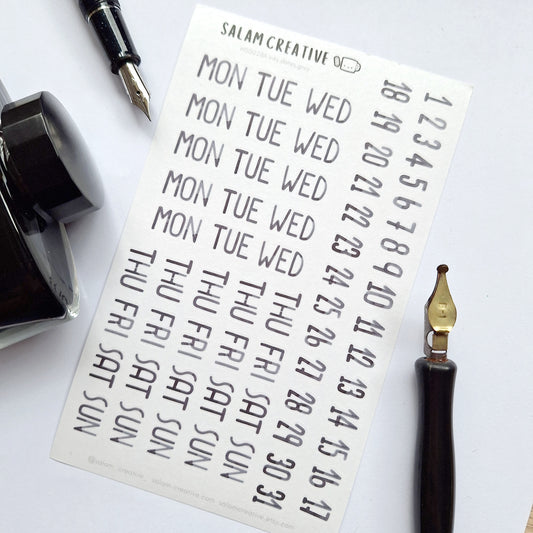 SALAM CREATIVE
MON TUE WED
MON TUE WED
MON TUE WED
MON TUE WED
MON TUE WED
THU FRI SAT SUN
THU FRI SAT SUN
THU FRI SAT SUN
THU FRI SAT SUN
THU FRI SAT SUN
1 2 3 4 5 6 7 8 9 10 11 12 13 14 15 16 17
18 19 20 21 22 23 24 25 26 27 28 29 30 31
@salam_creative_ salam-creative.com salamcreative.etsy.com